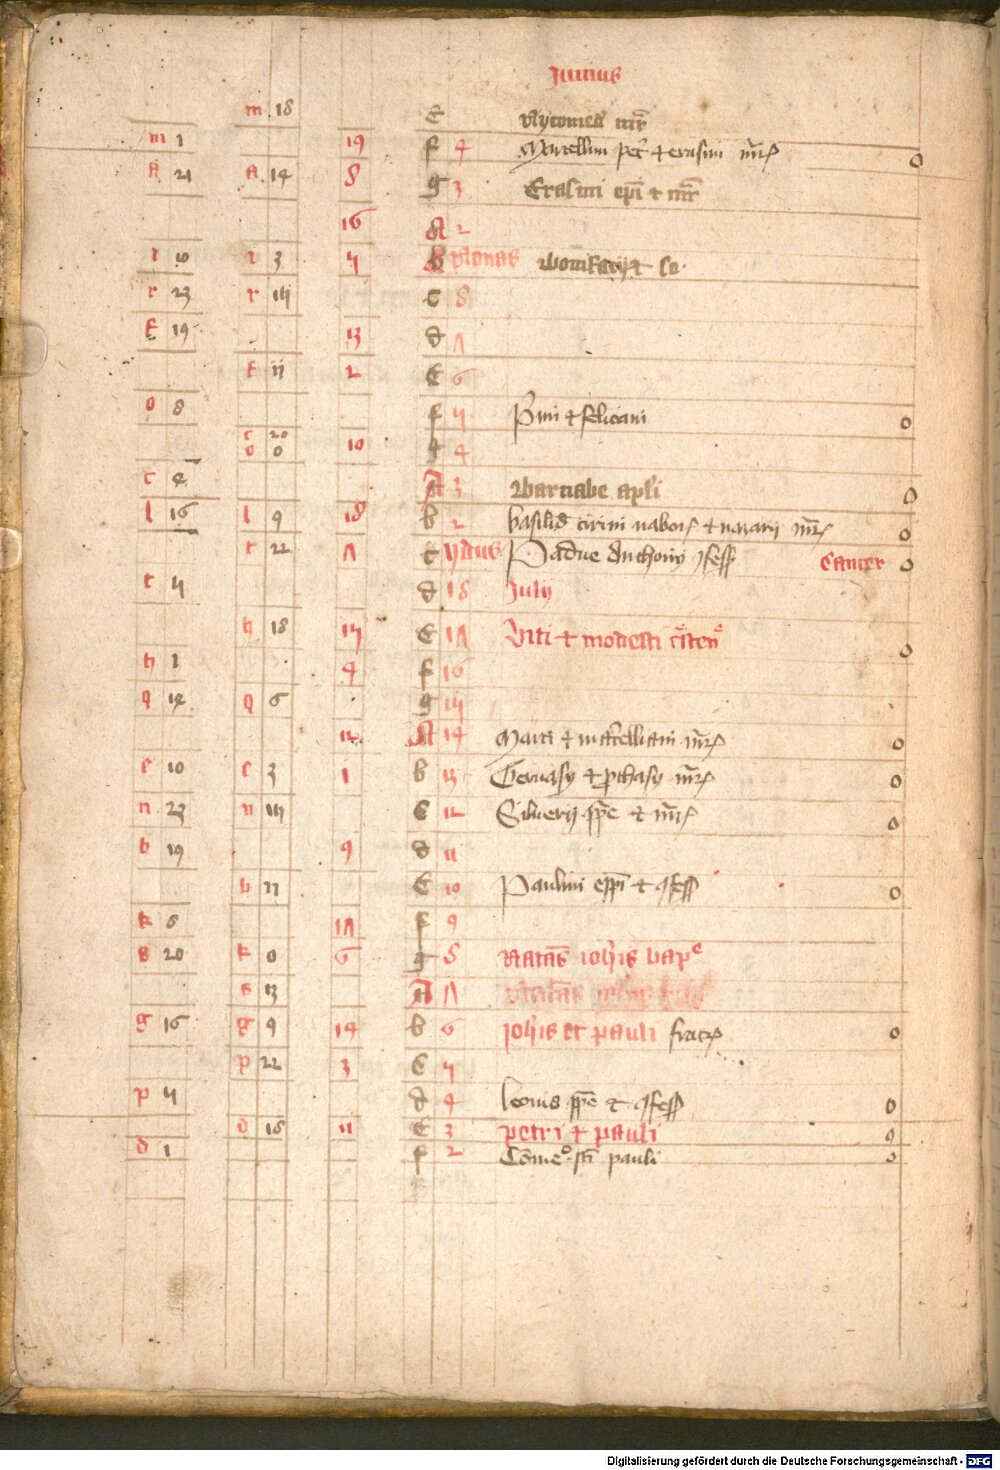 Junius
m 18 e Nycomed mr̄
m 1 19 f 4 Marcellini pet' et erasmi mr̄
A 21 A 14 8 g 3 Erasmi ep̄i et mr̄
16 A 2
r 10 r 3 5 b Nonas Bonifacij et so
r 23 r 15 c 8
f 19 13 d 7
f 11 2 e 6
o 8 f 5 P'mi et feliciani 0
c 20
o 0 10 g 4
c 4 A 3 Barnabe apl'i 0
l 16 l 9 18 b 2 basilid cirini nabor et nazarij mr̄ 0
t 22 7 c ydus Padue Anthonij 9fess Cancer 0
t 5 d 18 July
h 18 15 e 17 Viti et modesti 0
h 1 4 f 16
q 14 q 6 g 15
12 A 14 Marci et m'celliani mr̄ 0
e 10 e 3 1 b 13 Geruasij et p̱thasij mr̄ 0
n 23 n 15 c 12 Siluerij pp̄e et mr̄ 0
b 19 9 d 11
b 11 e 10 Paulini ep̄i et 9fess 0
k 8 17 f 9
s 20 k 0 6 g 8 Natal̄is ioh'is bap'e
s 13 A 7
g 16 g 9 14 b 6 Joh'is et pauli fratr 0
p 22 3 c 5
p 5 d 4 Leonis pp̄e et 9fess 0
d 18 11 e 3 petri et pauli 0
d 1 f 2 Cōme° sc̄i pauli 0
Digitalisierung gefördert durch die Deutsche Forschungsgemeinschaft - DFG